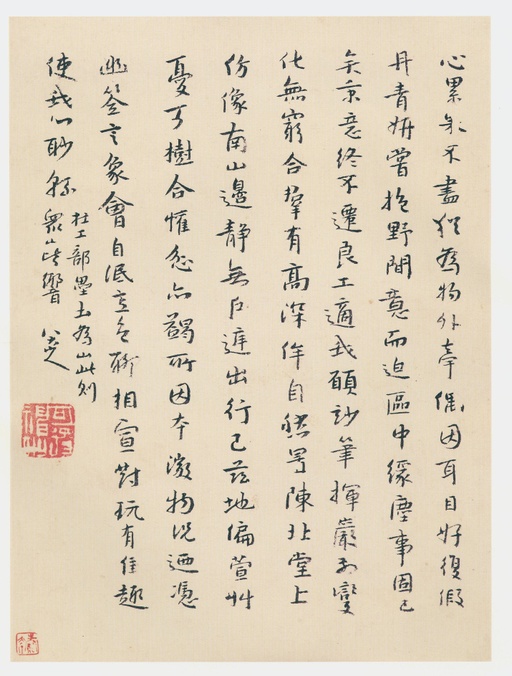 心累不盡猶為物外牽偶因耳目好復假
丹青妍嘗抱野間意而迫區中緣塵事固已
矣秉意終不遷良工適我願妙筆揮巖泉變
化無窮合羣有高深侔自然置陳北堂上
仿像南山邊靜無戶庭出行已茲地偏萱艸
憂可樹合懽忿亦蠲所因本微物況迺憑
幽筌言象會自泯意色聊相宣對玩有佳趣
使我心眇緜
杜工部壘土為山此則
衆山皆響
八大山人